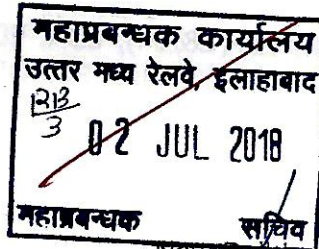 महाप्रबन्धक कार्यालय
उत्तर मध्य रेलवे, इलाहाबाद
02 JUL 2018
महाप्रबन्धक सचिव